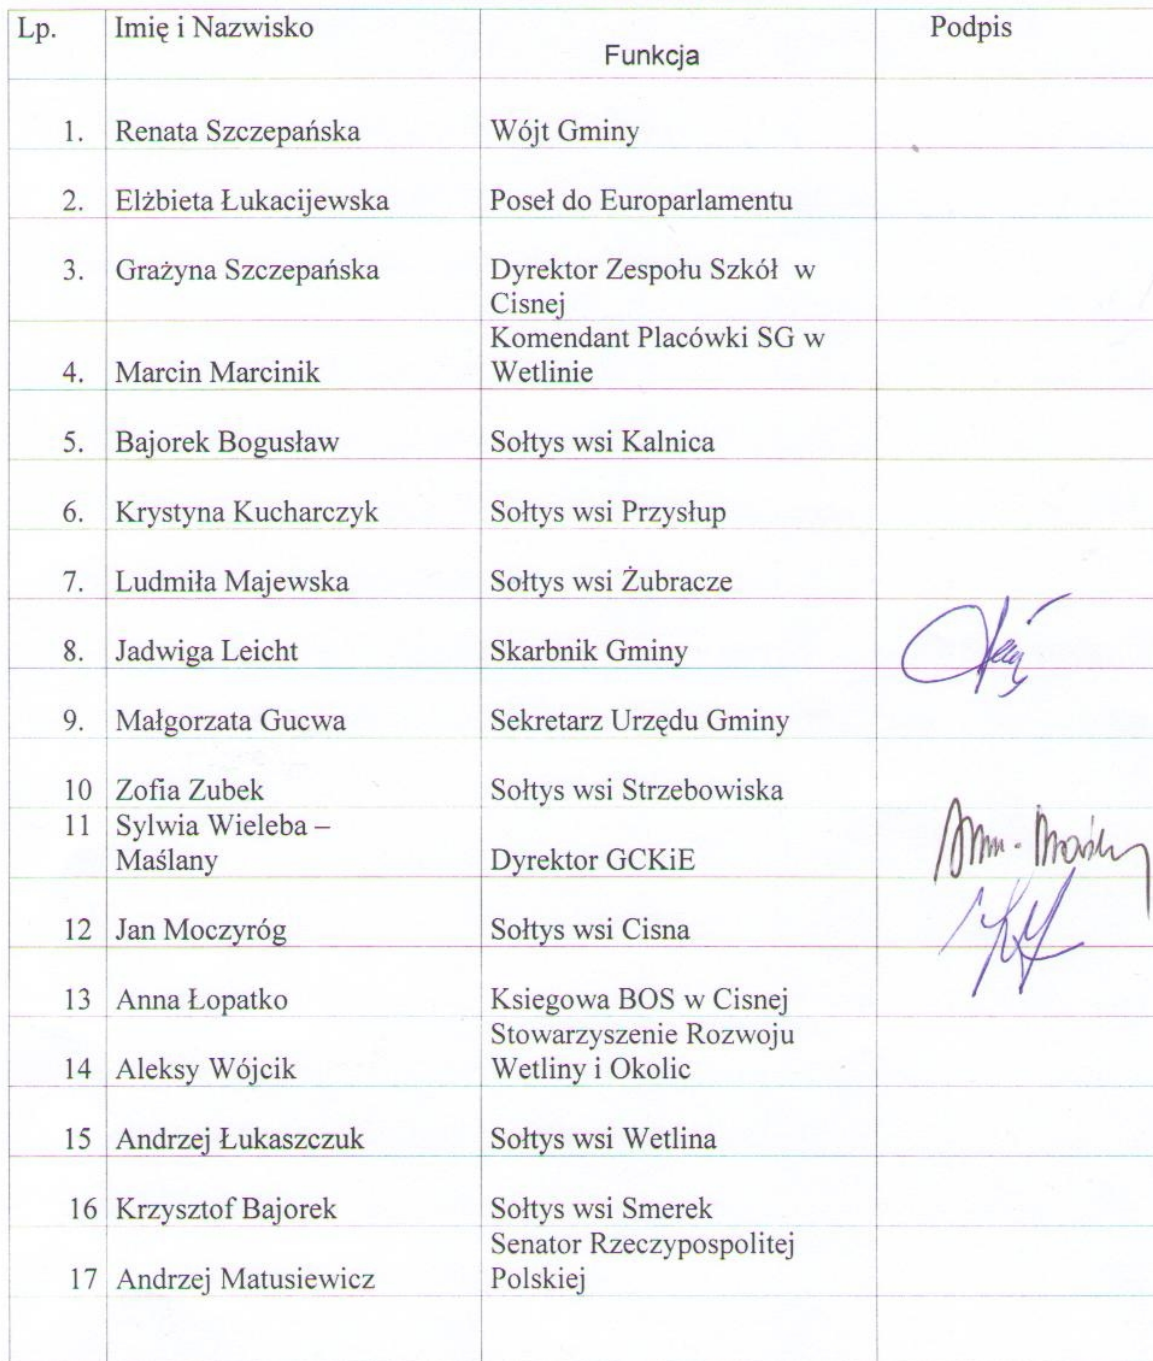 Lp. Imię i Nazwisko Funkcja Podpis
1. Renata Szczepańska Wójt Gminy
2. Elżbieta Łukacijewska Poseł do Europarlamentu
3. Grażyna Szczepańska Dyrektor Zespołu Szkół w
Cisnej
Komendant Placówki SG w
4. Marcin Marcinik Wetlinie
5. Bajorek Bogusław Sołtys wsi Kalnica
6. Krystyna Kucharczyk Sołtys wsi Przysłup
7. Ludmiła Majewska Sołtys wsi Żubracze
8. Jadwiga Leicht Skarbnik Gminy
9. Małgorzata Gucwa Sekretarz Urzędu Gminy
10 Zofia Zubek Sołtys wsi Strzebowiska
11 Sylwia Wieleba –
Maślany Dyrektor GCKiE
12 Jan Moczyróg Sołtys wsi Cisna
13 Anna Łopatko Ksiegowa BOS w Cisnej
Stowarzyszenie Rozwoju
14 Aleksy Wójcik Wetliny i Okolic
15 Andrzej Łukaszczuk Sołtys wsi Wetlina
16 Krzysztof Bajorek Sołtys wsi Smerek
Senator Rzeczypospolitej
17 Andrzej Matusiewicz Polskiej